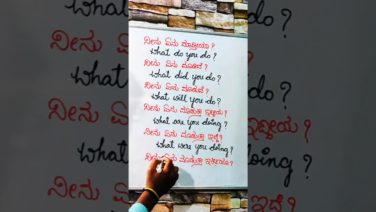 ನೀನು ಏನು ಮಾಡ್ತೀಯಾ?
What do you do?
ನೀನು ಏನು ಮಾಡಿದೆ?
What did you do?
ನೀನು ಏನು ಮಾಡುವೆ?
What will you do?
ನೀನು ಏನು ಮಾಡ್ತಾ ಇದ್ದೀಯ?
What are you doing?
ನೀನು ಏನು ಮಾಡ್ತಾ ಇದ್ದೆ?
What were you doing?
ನೀನು ಏನು ಮಾಡ್ತಾ ಇರ್ತೀಯಾ?